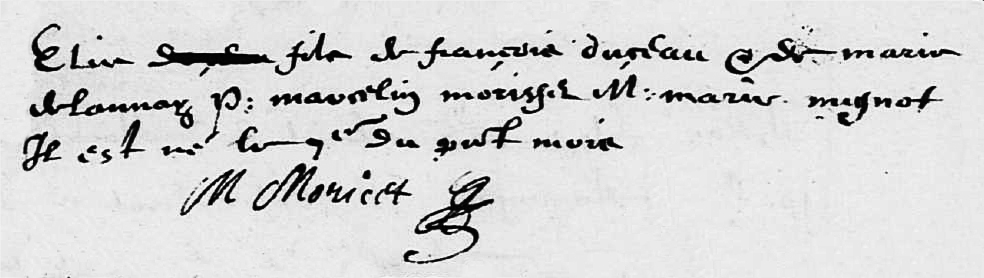 Elie filz de françois duceau & de marie
delaunay P: marcelin morisset M: marie mignot
Il est né le 9e du pnt mois
M Moricet